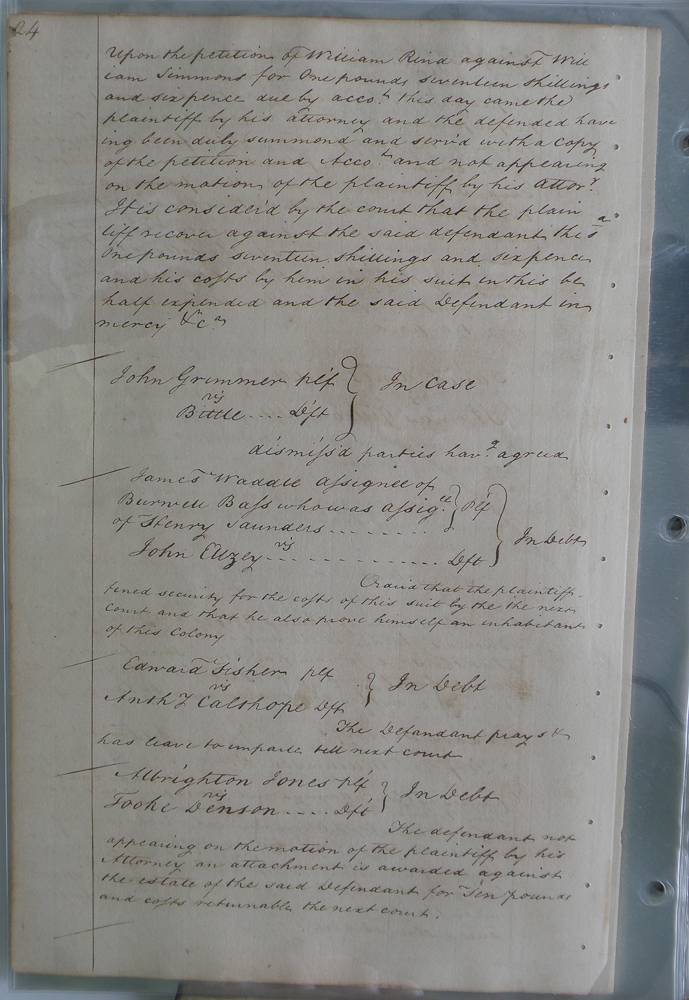 24
Upon the petition of William Rind against Will
iam Simmons for One pounds seventeen shillings
and sixpence due by acco.t this day came the
plaintiff by his attorney and the defended have
ing been duly summond and serv'd with a Copy
of the petition and Acco.t and not appearing
on the motion of the plaintiff by his attor.y
It is consider'd by the court that the plain
tiff recover against the said defendant the sa
One pounds seventeen shillings and sixpence
and his costs by him in his suit in this be
half expended and the said Defendant in
mercy &c
John Grimmer plf } In Case
vs
Bittle .... Dft
dismiss'd parties hav.g agreed
James Waddle assignee of
Burwell Bass who was assig.ee } plf
of Henry Saunders ........ } In Debt
vs
John Ellzey ............... Dft
Ord'd that the plaintiff
security for the costs of this suit by the the next
Court and that he also prove himself an inhabitant
of this Colony
Edward Fisher plf } In Debt
vs
Calthope Dft
The Defandant prays &
has leave to imparle till next court
Albrighton Jones plf } In Debt
vs
Tooke Denson .... Dft
The defendant not
appearing on the motion of the plaintiff by his
Attorney an attachment is awarded against
the estate of the said Defendant for Ten pounds
and costs returnable the next court.